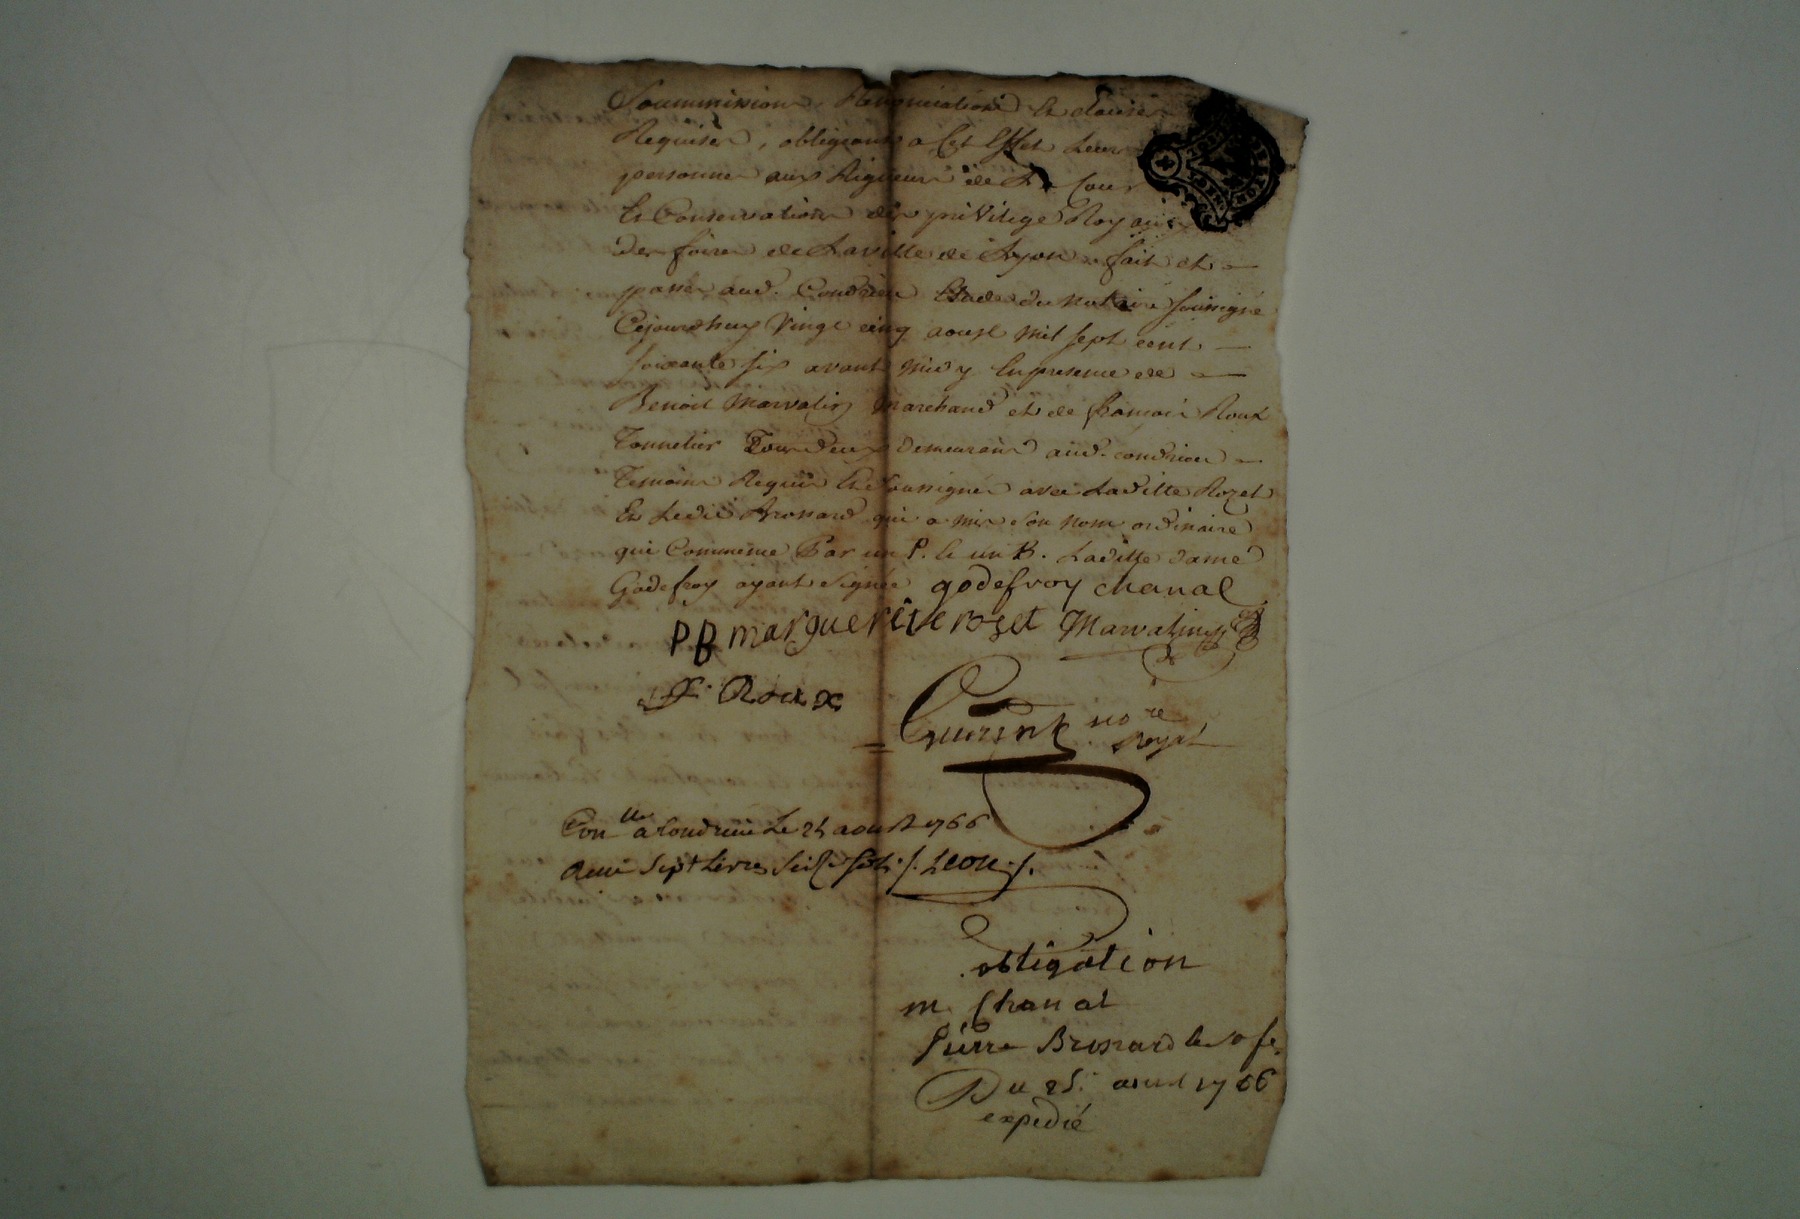 Soummissions Renonciations Et clauses
Requises, obligeant a Cet Effet Leurs
personnes aux Rigueurs de La Cour
Et Conservation des privilege Royaux
des foires de Laville de Lyon fait et
passé aud. Condrieu Etude du notaire soussigné
Cejourdhuy Vingt cinq aoust mil sept cent
soixante six avant midy En presence de
Benoit Marvalin Marchand et de François Roux
Tonnelier Tous deux demeurant aud. condrieu
Temoins Requis Et soussignés avec Laditte Rozet
Et Ledit Brossard qui a mis son nom ordinaire
qui Commence Par un P. & un B. Laditte dame
Godefroy ayant signée godefroy chanal
PB marguerite roset Marvalin
f. Roux
Guerin no.re
Royal
Con.lle a Condrieu Le 25 aoust 1766
Reçu sept Livres seize sols ./. Leon ./.
obligation
m. Chanal
Pierre Brossard & sa fe.
Du 25. aoust 1766
expedié